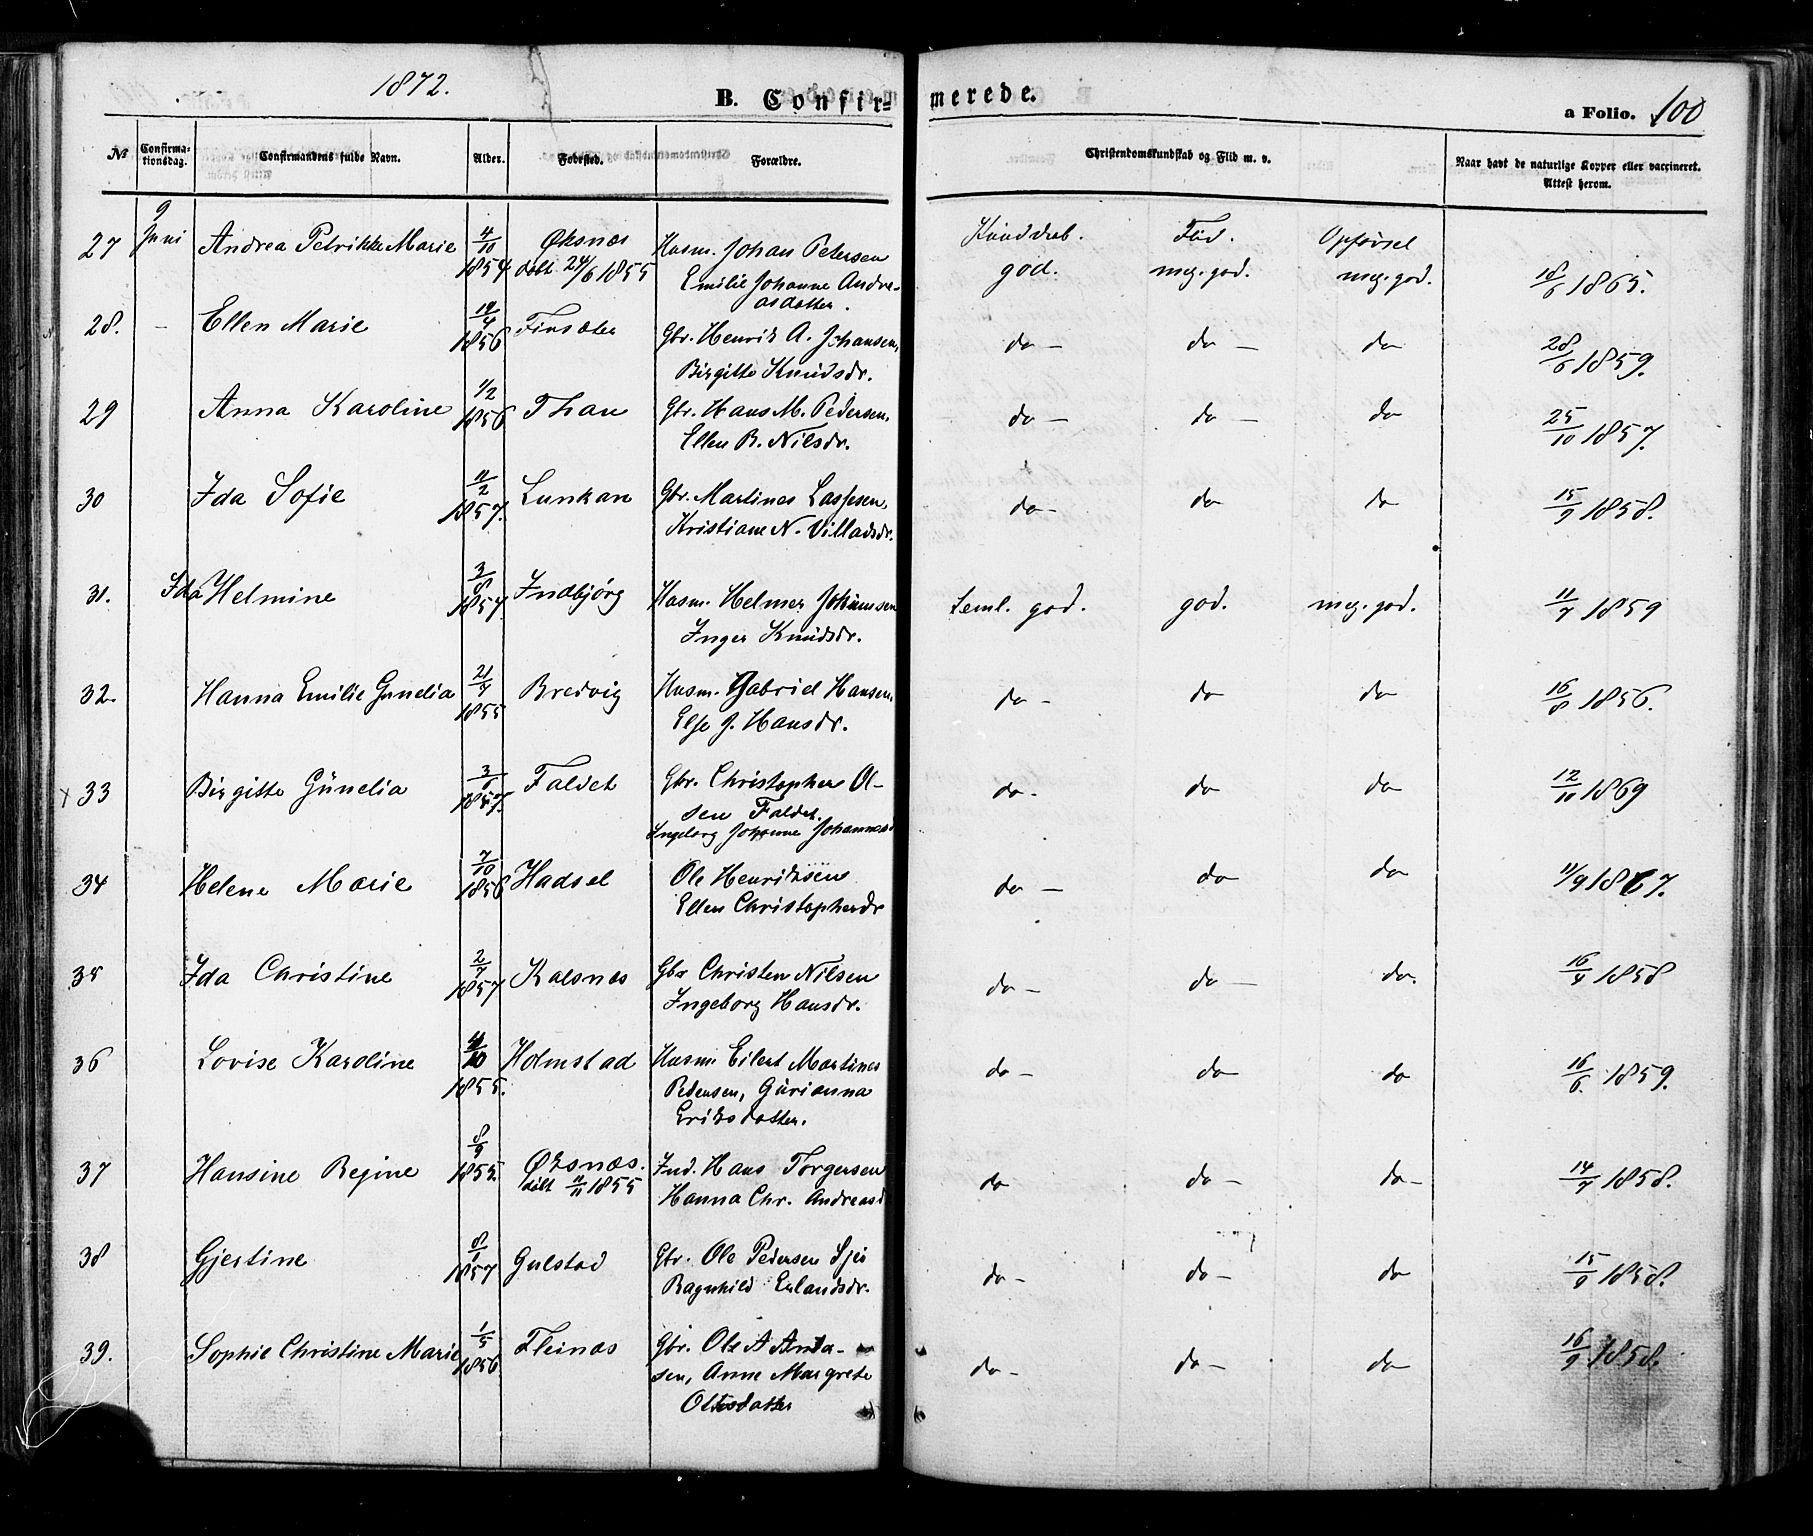 1872.
B. Confirmerede.
a Folio. 100
№ Confirmationsdag. Confirmandens fulde Navn. Alder. Fødested. Forældre. Christendomskundskab og Flid m. v. Naar havt de naturlige Kopper eller vaccineret. Attest herom.
27 9 Juni Andrea Petrikke Marie 4/10 1854 Øksnæs Husm. Johan Petersen Kundskab. Flid. Opførsel
døbt 24/6 1855 Emilie Johanne Andre- god. meg. god. meg. god. 18/6 1865.
asdatter.
28. – Ellen Marie 1856 Finsæter Gbr. Henrik A. Johansen, do – do – do 28/6 1859.
Birgitte Knudsdr.
29 Anna Karoline 1/2 1856 Than Gbr. Hans M. Pedersen, do – do – do 25/10 1857.
Ellen B. Nilsdr.
30 Ida Sofie 11/2 1857. Lunkan Gbr. Martines Lassesen, do – do do 15/9 1858.
Kristiane N. Villadsdr.
31. Ida Helmine 3/8 1857 Indbjørg Husm. Helmer Johansen Teml. god. god. meg. god. 11/7 1859
Inger Knudsdr.
32. Hanna Emilie Gunelia 21/7 1855 Bredvig Husm. Gabriel Hansen, do – do do 16/8 1856.
Else J. Hansdr.
+ 33 Birgitte Günelia 3/6 1857. Faldet Gbr. Christopher Ol- do. do do 12/10 1869
sen Faldet.
Ingeborg Johanne Johannesd
34 Helene Marie 7/10 1856 Hadsel Ole Henriksen do – do do 11/9 1867.
Ellen Christophersdr
35 Ida Christine 2/7 1857 Kalsnes Gbr Christen Nilsen do – do – do. 16/4 1858
Ingeborg Hansdr.
36 Lovise Karoline 1855. Holmstad Husm Eilert Martines do – do do 16/6. 1859.
Pedersen, Gurianna
Eriksdatter.
37 Hansine Regine 8/9 1855. Øksnæs. Ind. Hans Torgersen do do – do – 14/7 1858.
døbt 11/11 1855 Hanna Chr. Andreasd
38 Gjertine 8/1 1857 Gulstad Gbr. Ole Pedersen do – do – do 15/9 1858.
Ragnhild Erlandsdr.
39. Sophie Christine Marie 1/5 1856 Fleinæs Gbr. Ole A do – do – do 16/9 1858.
sen, Anne Margrete
Olesdatter